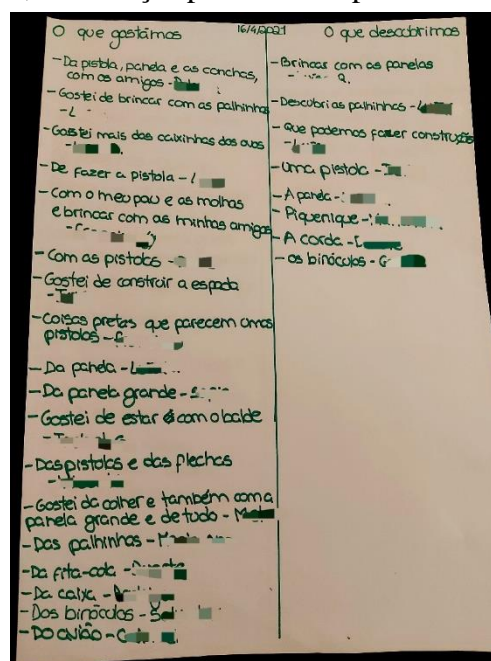 16/4/2021
O que gostámos
-Da pistola, panela e as conchas,
com os amigos -
-Gostei de brincar com as palhinhas
-Gostei mais das caixinhas dos ovos
-De fazer a pistola -
-Com o meu pau e as molhas
e brincar com as minhas amigas
-Com as pistolas -
-Gostei de construir a espada
-Coisas pretas que parecem umas
pistolas -
-Da panela -
-Da panela grande -
-Gostei de estar com o balde
-Das pistolas e das flechas
-Gostei da colher e também com a
panela grande e de tudo -
-Das palhinhas -
-Da fita-cola -
-Da caixa -
-Dos binóculos -
-Do avião -
O que descobrimos
-Brincar com as panelas
-Descobri as palhinhas -
-Que podemos fazer construções
-Uma pistola -
-A panela -
-Piquenique -
-A corda -
-os binóculos - G